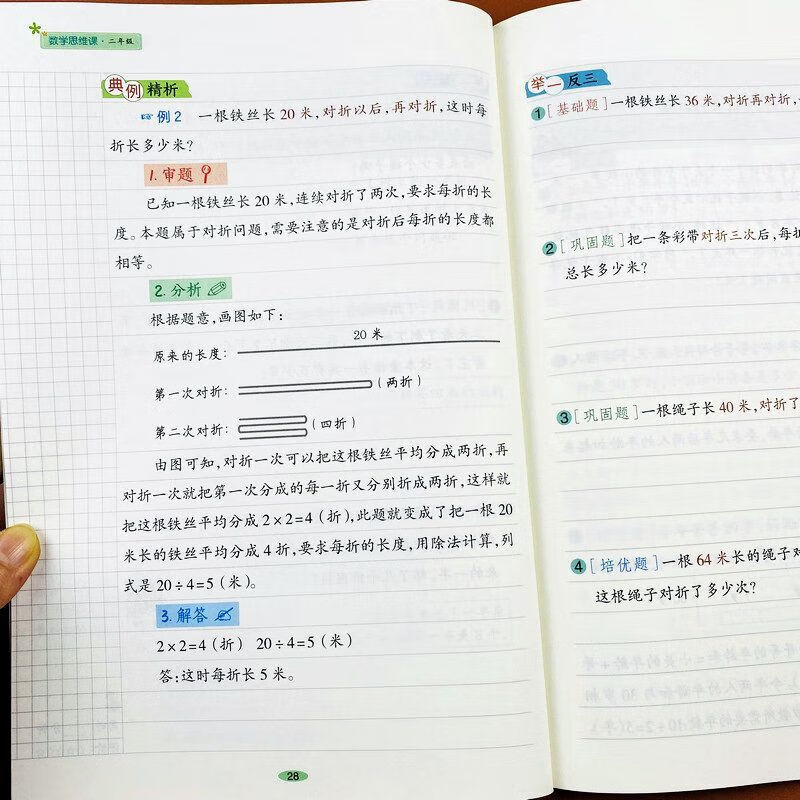 数学思维课·二年级
典例精析
例2 一根铁丝长 20 米,对折以后,再对折,这时每
折长多少米?
1.审题
已知一根铁丝长 20 米,连续对折了两次,要求每折的长
度。本题属于对折问题,需要注意的是对折后每折的长度都
相等。
2.分析
根据题意,画图如下:
20 米
原来的长度:
第一次对折:(两折)
第二次对折:(四折)
由图可知,对折一次可以把这根铁丝平均分成两折,再
对折一次就把第一次分成的每一折又分别折成两折,这样就
把这根铁丝平均分成 2×2=4(折),此题就变成了把一根 20
米长的铁丝平均分成 4 折,要求每折的长度,用除法计算,列
式是 20÷4=5(米)。
3.解答
2×2=4(折) 20÷4=5(米)
答:这时每折长 5 米。
28
举一反三
1[基础题]一根铁丝长 36 米,对折再对折,
2[巩固题]把一条彩带对折三次后,每折
总长多少米?
3[巩固题]一根绳子长 40 米,对折了
4[培优题]一根 64 米长的绳子对
这根绳子对折了多少次?